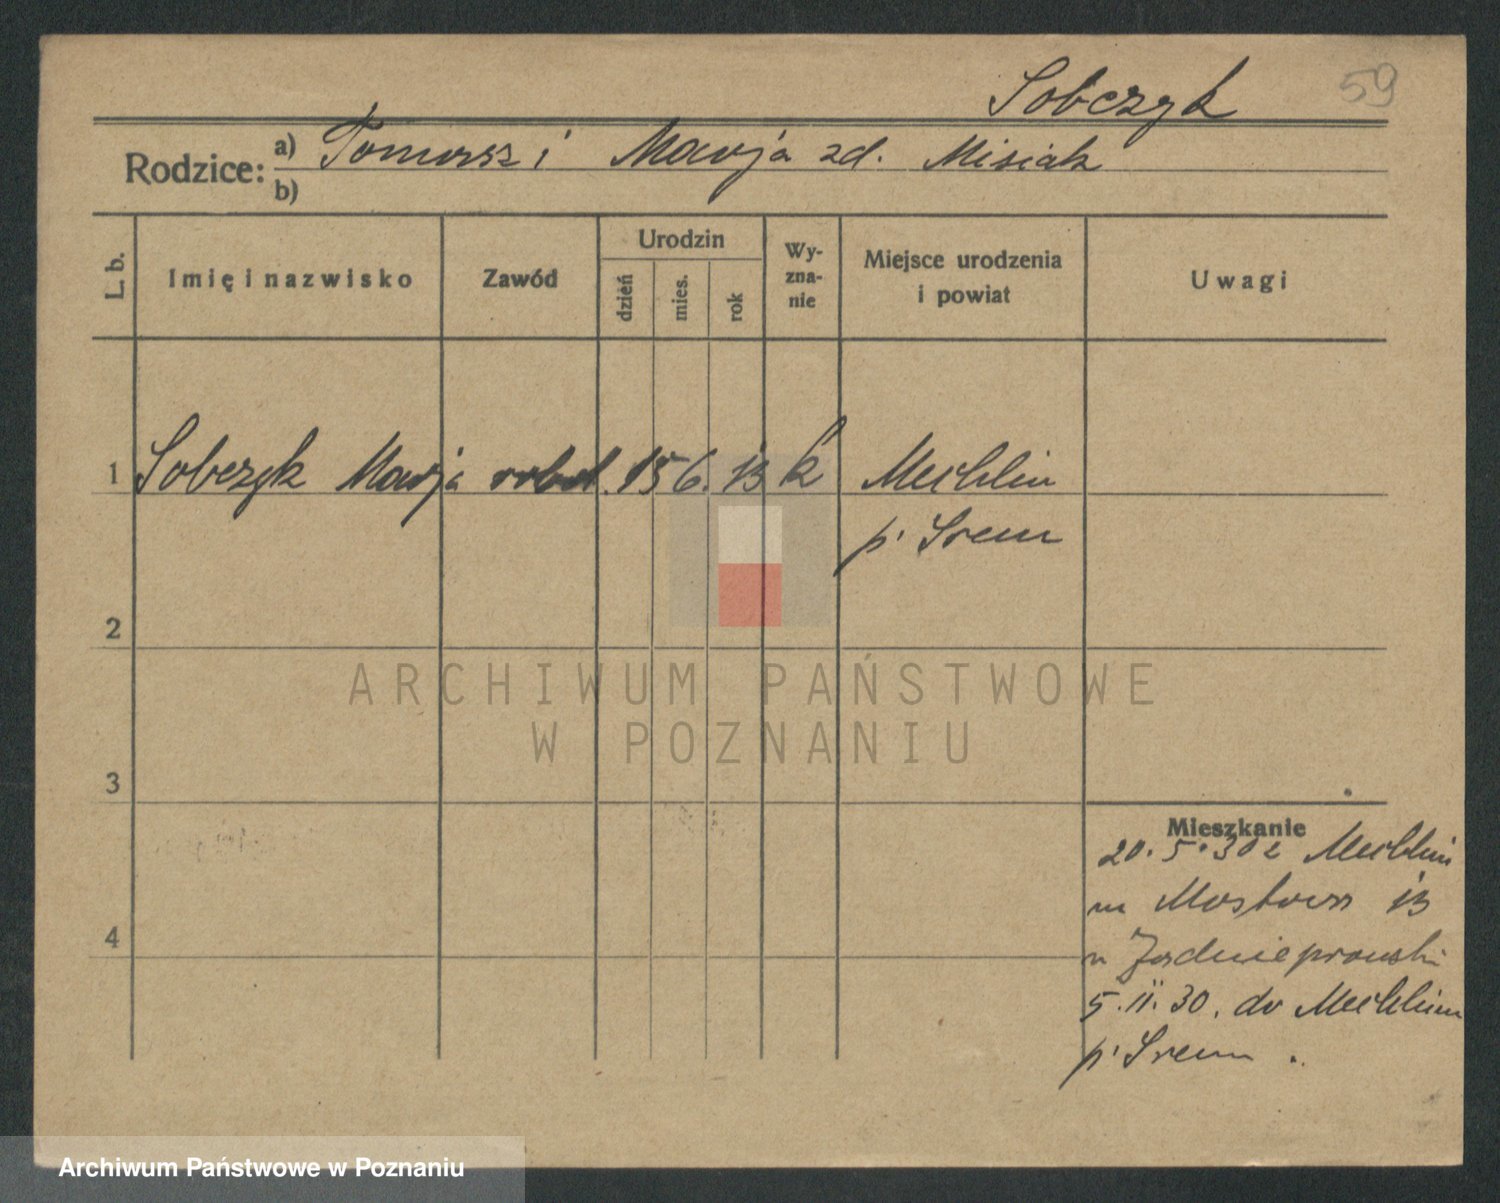 59
Sobczyk
Rodzice: a) Tomasz i Marja zd. Misiak
b)
L. b. Imię i nazwisko Zawód Urodzin dzień mies. rok Wyzna-nie Miejsce urodzenia i powiat Uwagi
1 Sobczyk Marja robot. 15 6. 13 k Mechlin
p. Srem
2
ARCHIWUM PAŃSTWOWE
W POZNANIU
3
Mieszkanie
20. 5. 30 z Mechlin
4
5. 11. 30. do Mechlin
p. Srem.
Archiwum Państwowe w Poznaniu